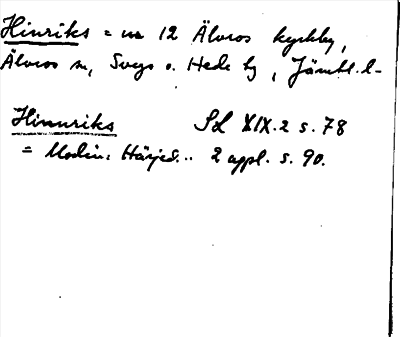 Hinriks = nr 12 Älvros kyrkby,
Älvros sn, Svegs o. Hede tg, Jämtl. l.
Hinnriks SOL XIX.2 s. 78
= Modin: Härjed... 2 uppl. s. 90.